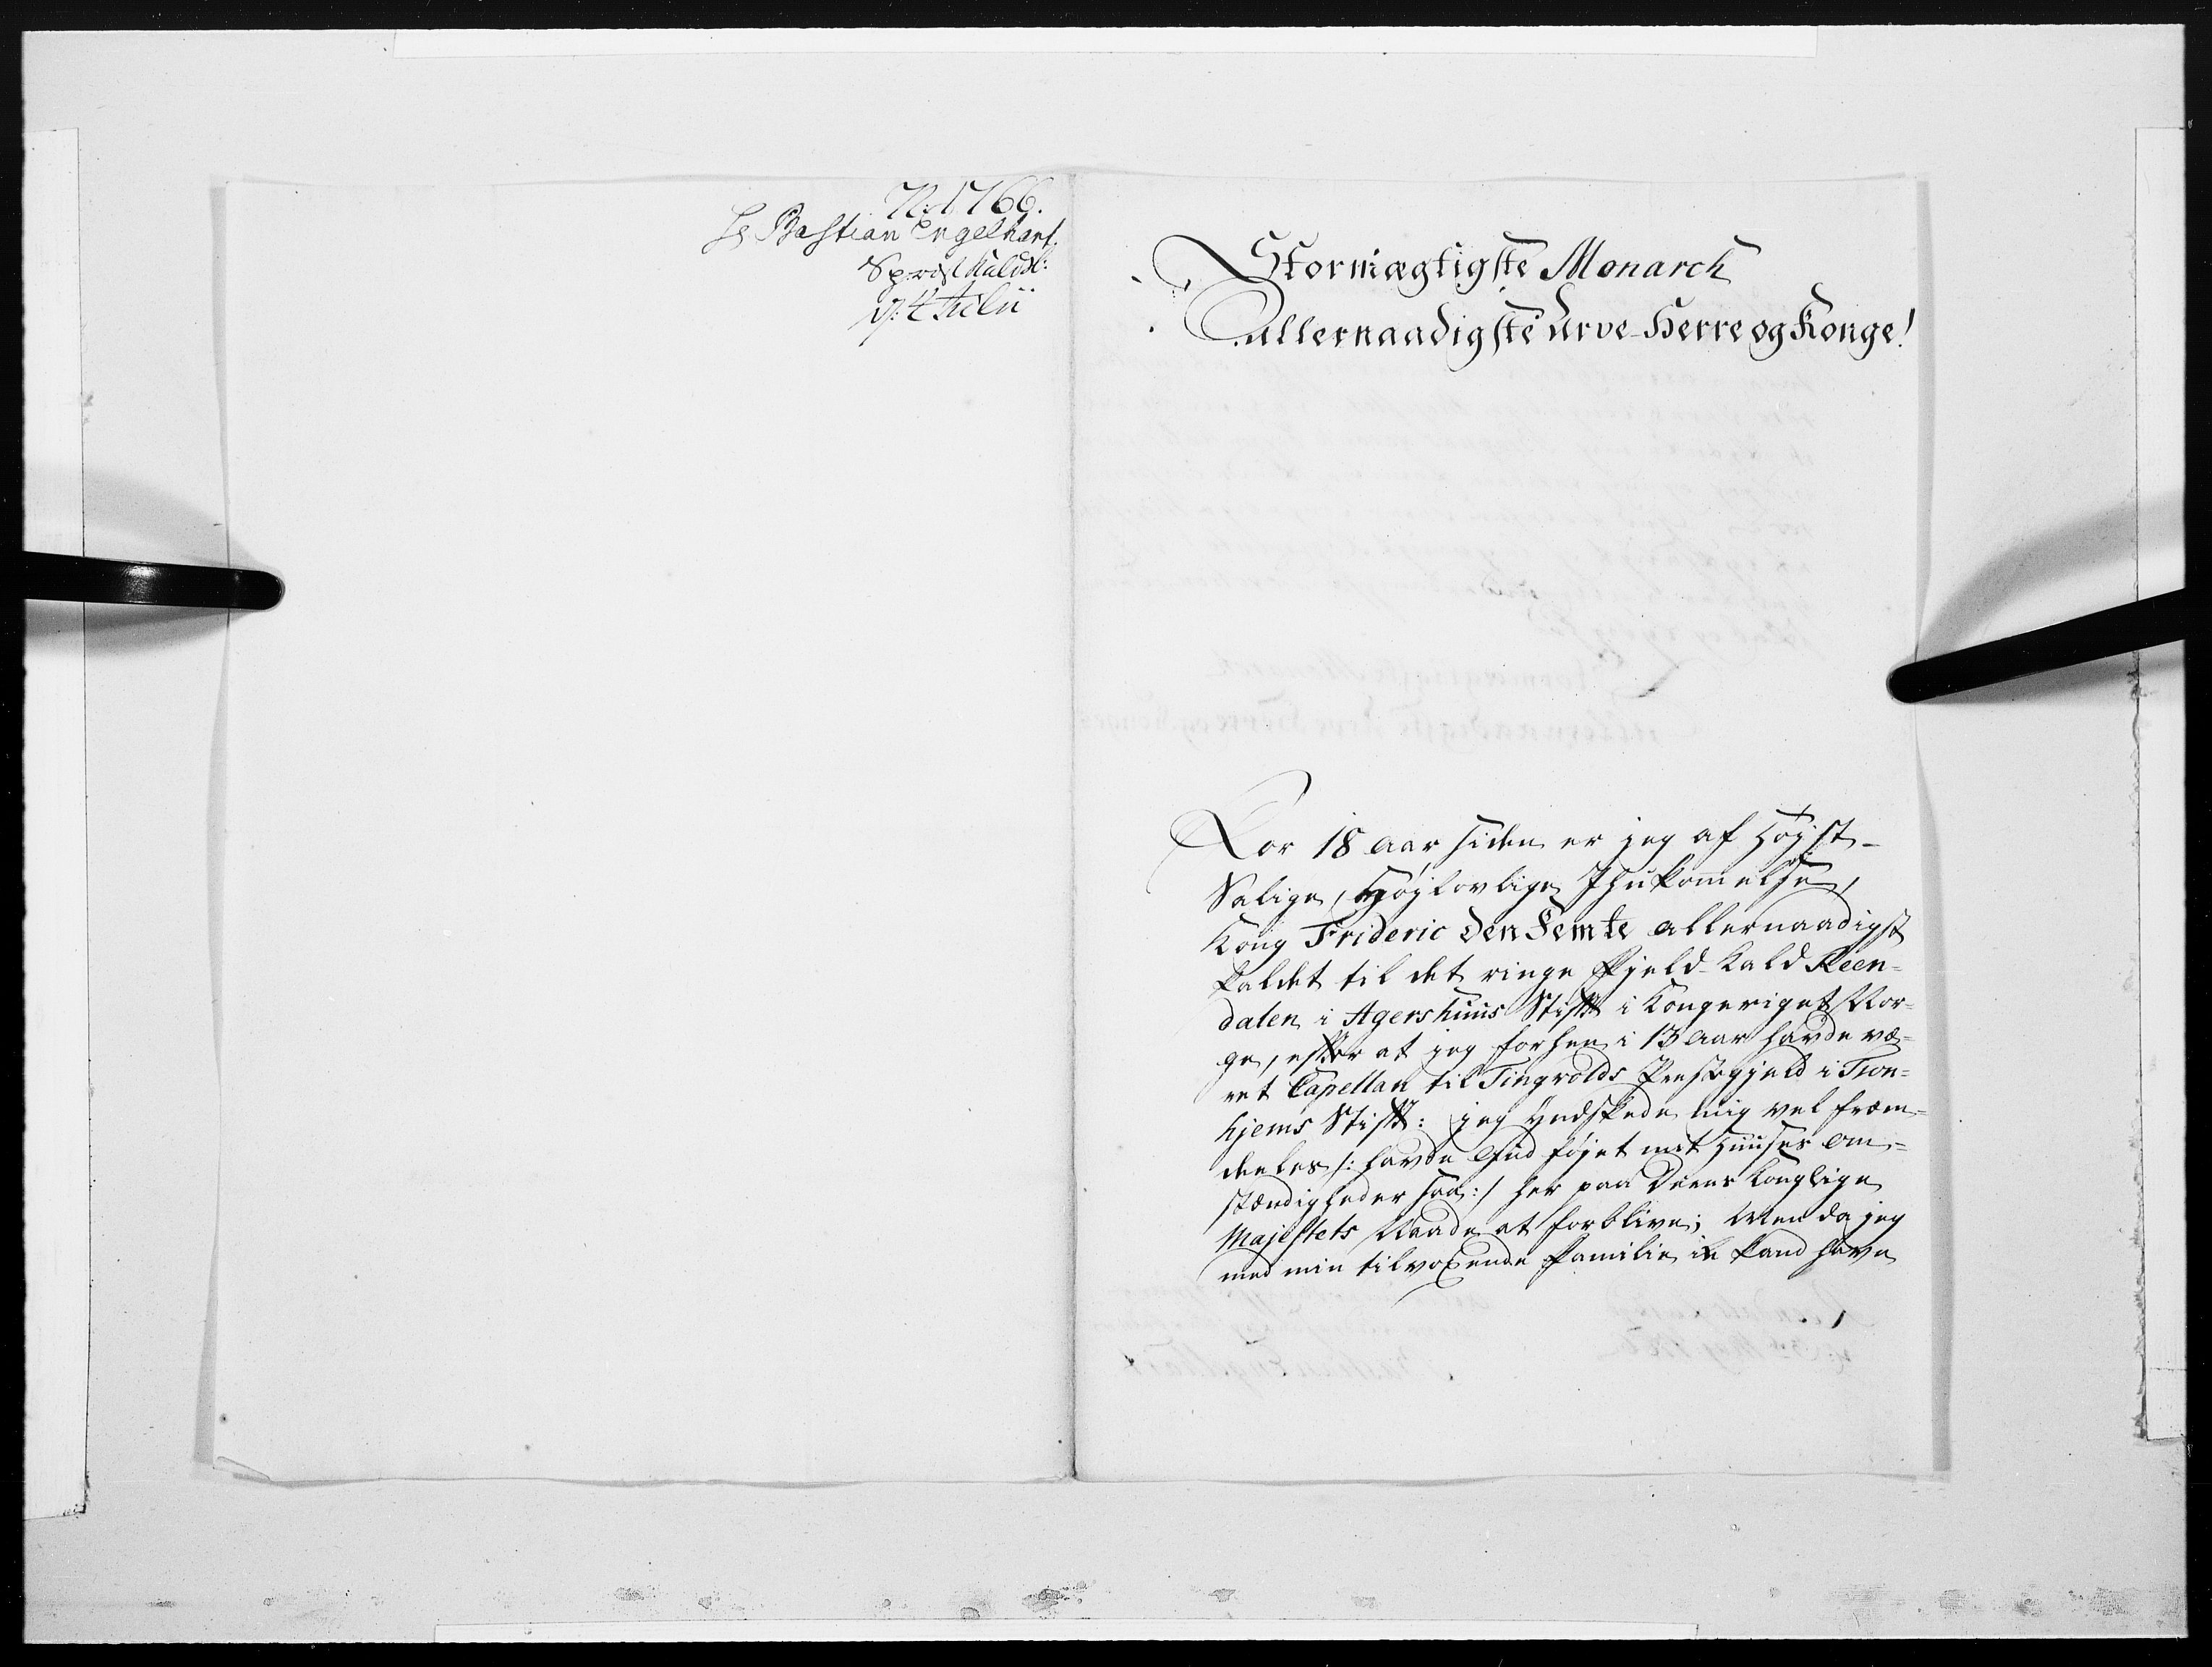 No: 1766.
Bastian Engelhart.
d: 4 Julii
Stormægtigste Monarch
Allernaadigste Arve-Herre og Konge!
For 18 Aar siden er jeg af Høyst-
Salige, Høylovlige Ihukommelse,
Kong Frideric den Femte allernaadigst
kaldet til det ringe Fjeld-Kald Reen-
dalen i Agershuus Stift i Kongeriget Nor-
ge, efter at jeg forhen i 13 Aar havde væ-
ret Capellan til Tingvolds Præstegjeld i Tron-
hjems Stift: jeg yndskede mig vel frem-
deeles /: havde Gud føjet mit Huuses Om-
stændigheder saa :/ her paa Deres Konglige
Majestets Naade at forblive; Men da jeg
med min tilvoxende Familie ik kand have